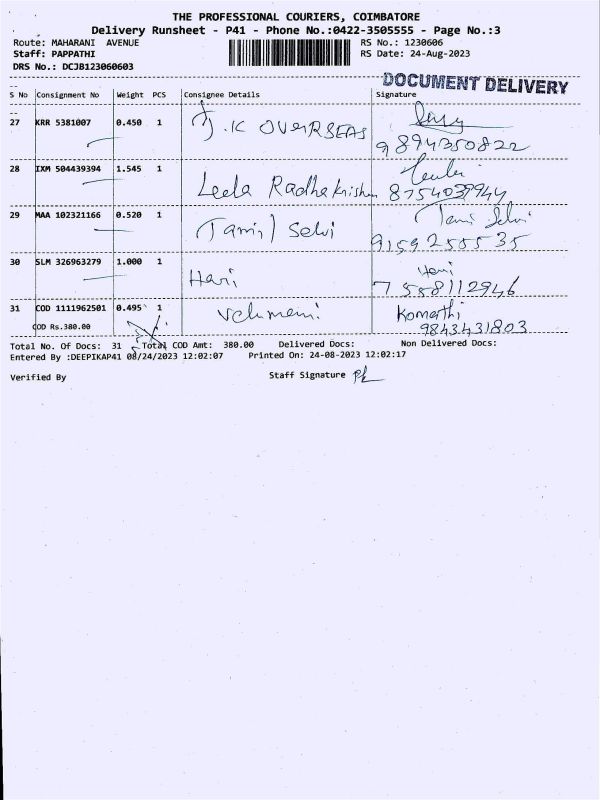 THE PROFESSIONAL COURIERS, COIMBATORE
Delivery Runsheet - P41 - Phone No.:0422-3505555 - Page No.:3
Route: MAHARANI AVENUE RS No.: 1230606
Staff: PAPPATHI RS Date: 24-Aug-2023
DRS No.: DCJB123060603
DOCUMENT DELIVERY
S No Consignment No Weight PCS Consignee Details Signature
27 KRR 5381007 0.450 1 J.K OVERSEAS
9894350822
28 IXM 504439394 1.545 1
Leela Radhakrishnan 8754039944
29 MAA 102321166 0.520 1 Tamil Selvi Tami Selvi
9159255535
30 SLM 326963279 1.000 1 Hari Hari
7558112946
31 COD 1111962501 0.495 1 Komathi
COD Rs.380.00 9843431803
Total No. Of Docs: 31 Total COD Amt: 380.00 Delivered Docs: Non Delivered Docs:
Entered By :DEEPIKAP41 08/24/2023 12:02:07 Printed On: 24-08-2023 12:02:17
Verified By Staff Signature